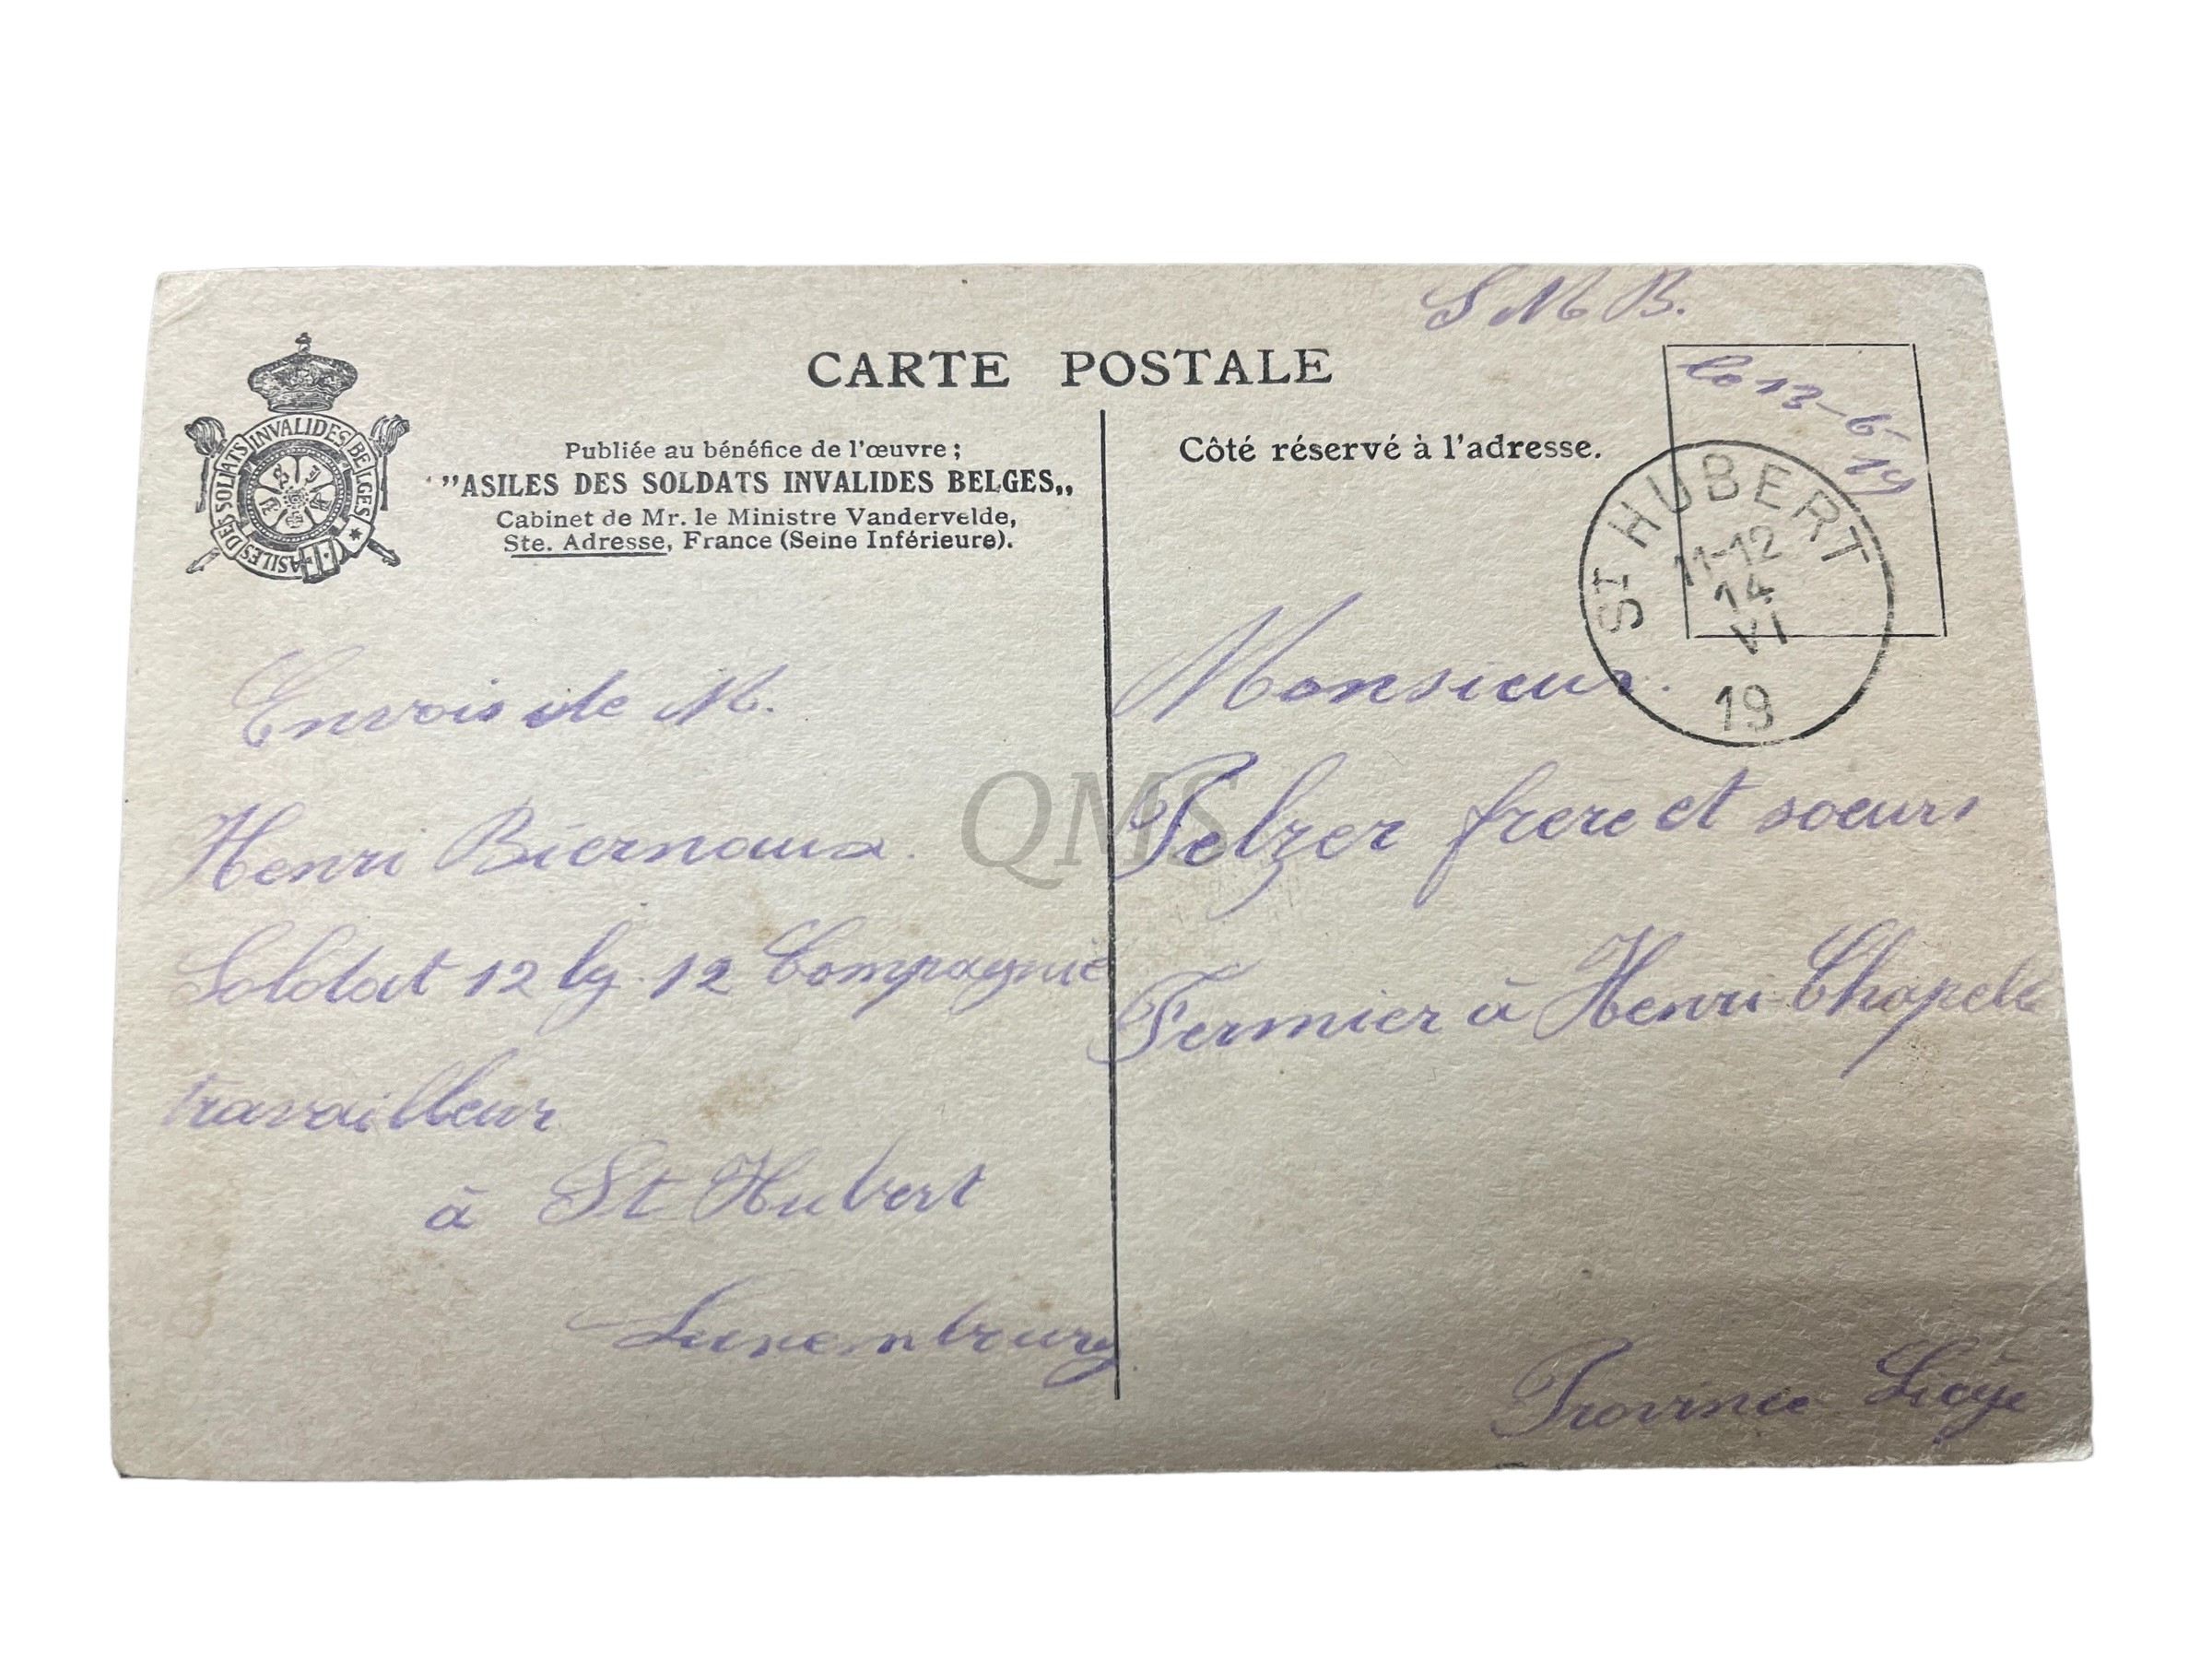 S M B.
CARTE POSTALE
le 13-6-19
ASILES DES SOLDATS INVALIDES BELGES
Publiée au bénéfice de l'œuvre ;
"ASILES DES SOLDATS INVALIDES BELGES„
Cabinet de Mr. le Ministre Vandervelde,
Ste. Adresse, France (Seine Inférieure).
Envois de M.
Henri Biernaux.
Soldat 12 lg. 12 Compagnie
travailleur
à St Hubert
Luxembourg
Côté réservé à l'adresse.
ST HUBERT
11-12
14
VI
19
Monsieur.
Pelzer frere et soeurs
Fermier à Henri-Chapell
Province Liége
QMS